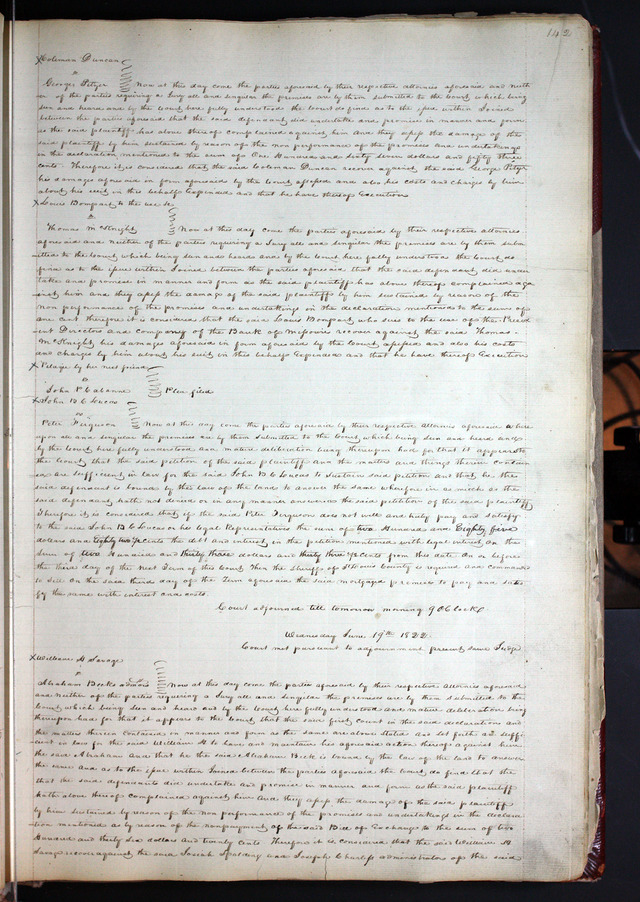 142
Coleman Duncan
vs
George Pitzer Now at this day come the parties aforesaid by their respective attornies aforesaid and neith
er of the parties requiring a Jury all and singular the premises are by them submitted to the Court which being
seen and heard and by the Court here fully understood the Court do find as to the issue within Joined
between the parties aforesaid that the said defendant did undertake and promise in manner and form
as the said plaintiff has above thereof complained against him And they assess the damage of the
said plaintiff by him sustained by reason of the non performance of the promises and undertakings
in the declaration mentioned to the sum of One Hundred and sixty seven dollars and fifty three
cents Therefore it is considered that the said Coleman Duncan recover against the said George Pitzer
his damages aforesaid in form aforesaid by the Court assessed and also his Costs and Charges by him
about his suit in this behalf Expended and that he have thereof Execution
Louis Bompart to the use &c
vs
Thomas McKnight Now at this day come the parties aforesaid by their respective attornies
aforesaid and neither of the parties requiring a Jury all and singular the premises are by them subm
itted to the Court which being seen and heard and by the Court here fully understood the Court do
find as to the issue within Joined between the parties aforesaid that the said defendant did under
take and promise in manner and form as the said plaintiff has above thereof complained aga
inst him and they assess the damage of the said plaintiff by him sustained by reason of the
non performance of the promises and undertakings in the declaration mentioned to the sum of
one cent therefore it is considered that the said Louis Bompart who sues to the use of the Presid
ent Directors and company of the Bank of Missouri recover against the said Thomas
McKnight his damages aforesaid in form aforesaid by the Court assessed and also his costs
and charges by him about his suit in this behalf Expended and that he have thereof Execution
Pelagie by her next friend
vs
John P Cabanne Plea filed
John B C Lucas
vs
Peter Ferguson Now at this day come the parties aforesaid by their respective attornies aforesaid where
upon all and singular the premises are by them submitted to the Court which being seen and heard and
by the Court here fully understood and mature deliberation being thereupon had for that it appears to
the Court that the said petition of the said plaintiff and the matters and things therein contain
ed are sufficient in law for the said John B C Lucas to sustain said petition and that he the
said defendant is bound by the law of the land to answer the same wherefore in as much as the
said defendant hath not denied or in any manner answered the said petition of the said plaintiff
Therefore it is considered that if the said Peter Ferguson does not well and truly pay and satisfy
to the said John B C Lucas or his legal Representatives the sum of two Hundred and Eighty five
dollars and Eighty two cents the debt and interest in the petition mentioned with legal interest on the
sum of two Hundred and thirty three dollars and thirty three cents from this date on or before
the third day of the next Term of this Court then the Sheriff of St Louis County is required and commanded
to sell on the said third day of the Term aforesaid the said mortgaged premises to pay and satis
fy the same with interest and costs.
Court adjourned till tomorrow morning 9 OClock
Wednesday June 19th 1822
Court met pursuant to adjournment present same Judge
William H Savage
vs
Abraham Becks admors Now at this day come the parties aforesaid by their respective attornies aforesaid
and neither of the parties requiring a Jury all and singular the premises are by them submitted to the
Court which being seen and heard and by the Court here fully understood and mature deliberation being
thereupon had for that it appears to the Court that the said first Count in the said declaration and
the matters therein contained in manner and form as the same are above stated and set forth are suffi
cient in law for the said William H to have and maintain his aforesaid action thereof against him
the said Abraham And that he the said Abraham Beck is bound by the law of the land to answer
the same and as to the issue within Joined between the parties aforesaid the Court do find that the
that the said defendants did undertake and promise in manner and form as the said plaintiff
hath above thereof complained against him And they assess the damage of the said plaintiff
by him sustained by reason of the non performance of the promises and undertakings in the declara
tion mentioned as by reason of the nonpayment of the said Bill of Exchange to the sum of two
Hundred and thirty six dollars and twenty cents Therefore it is considered that the said William H
Savage recover against the said Josiah Spalding and Joseph Charless administrators of the said